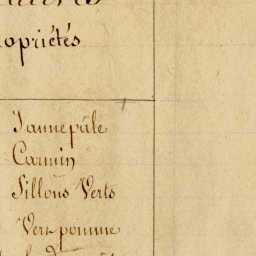 opriétés
Jaune pâle
Carmin
Sillons Verts
Vert pomme